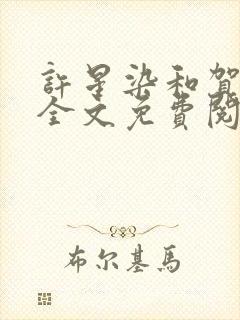 許星染和賀
全文免費閱
布尔基馬